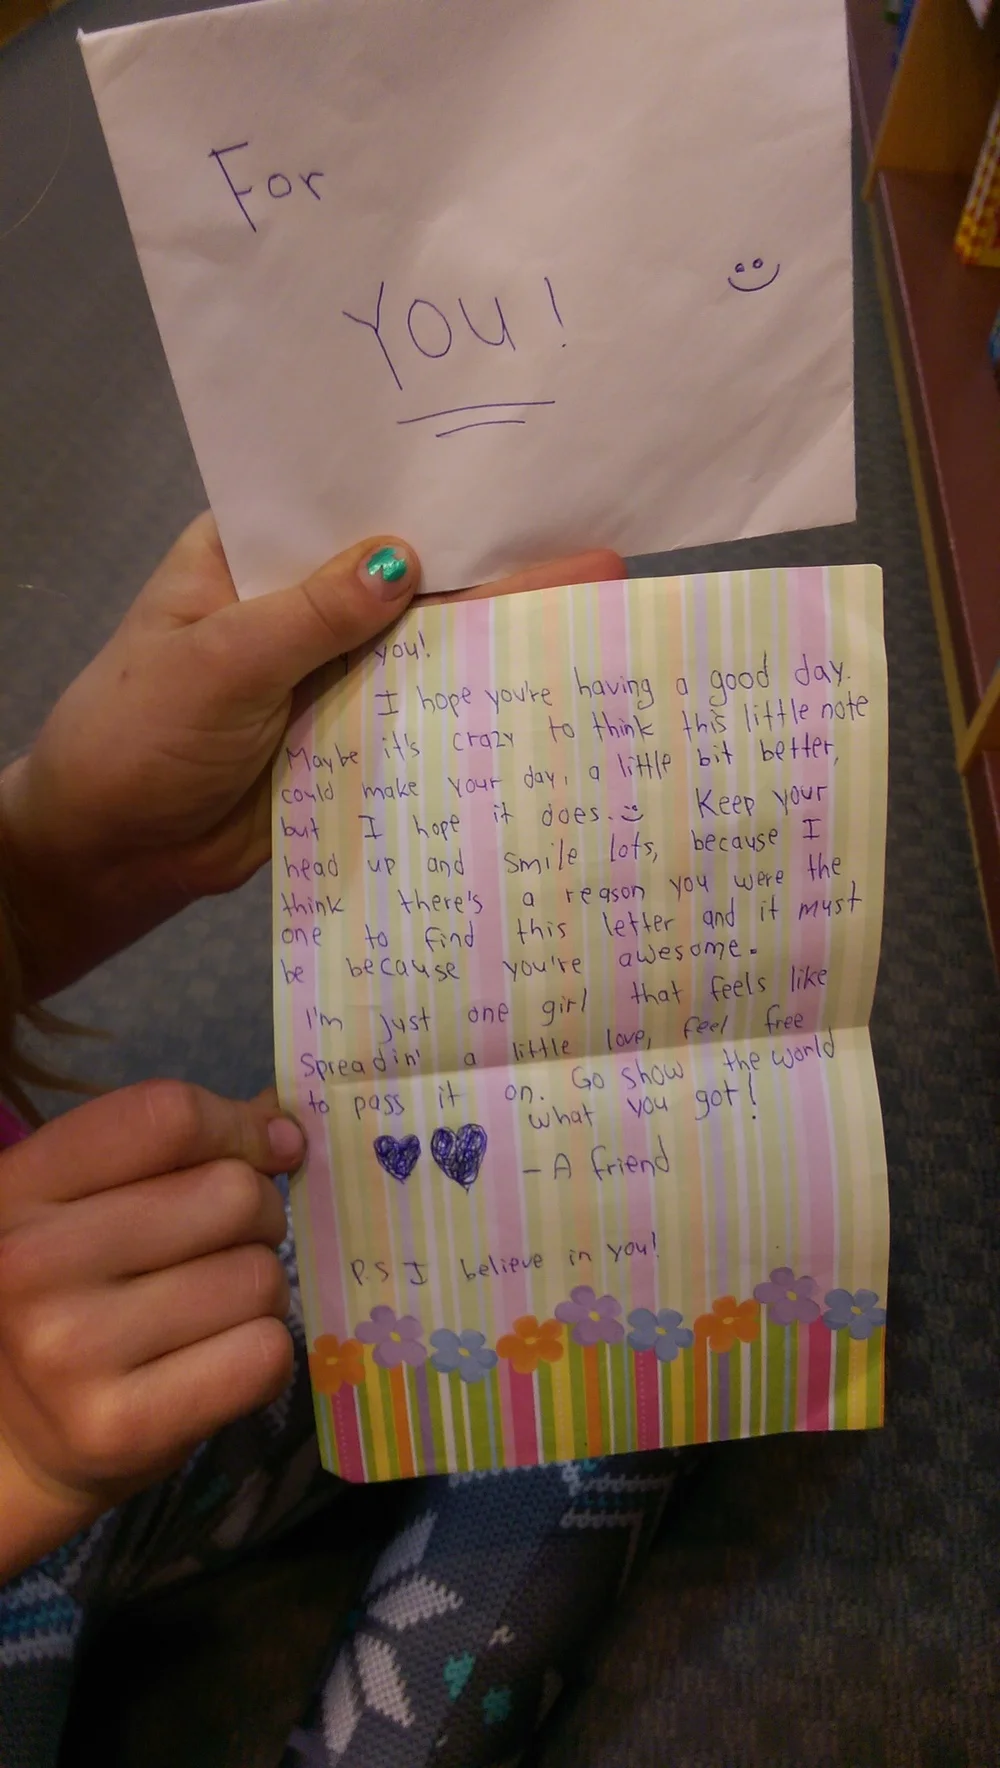 For
YOU!
you!
I hope you're having a good day.
Maybe it's crazy to think this little note
could make your day, a little bit better,
but I hope it does. Keep your
head up and smile lots, because I
think there's a reason you were the
one to find this letter and it must
be because you're awesome.
I'm just one girl that feels like
Spreadin' a little love, feel free
to pass it on. Go show the world
what you got!
- A friend
P.S I believe in you!